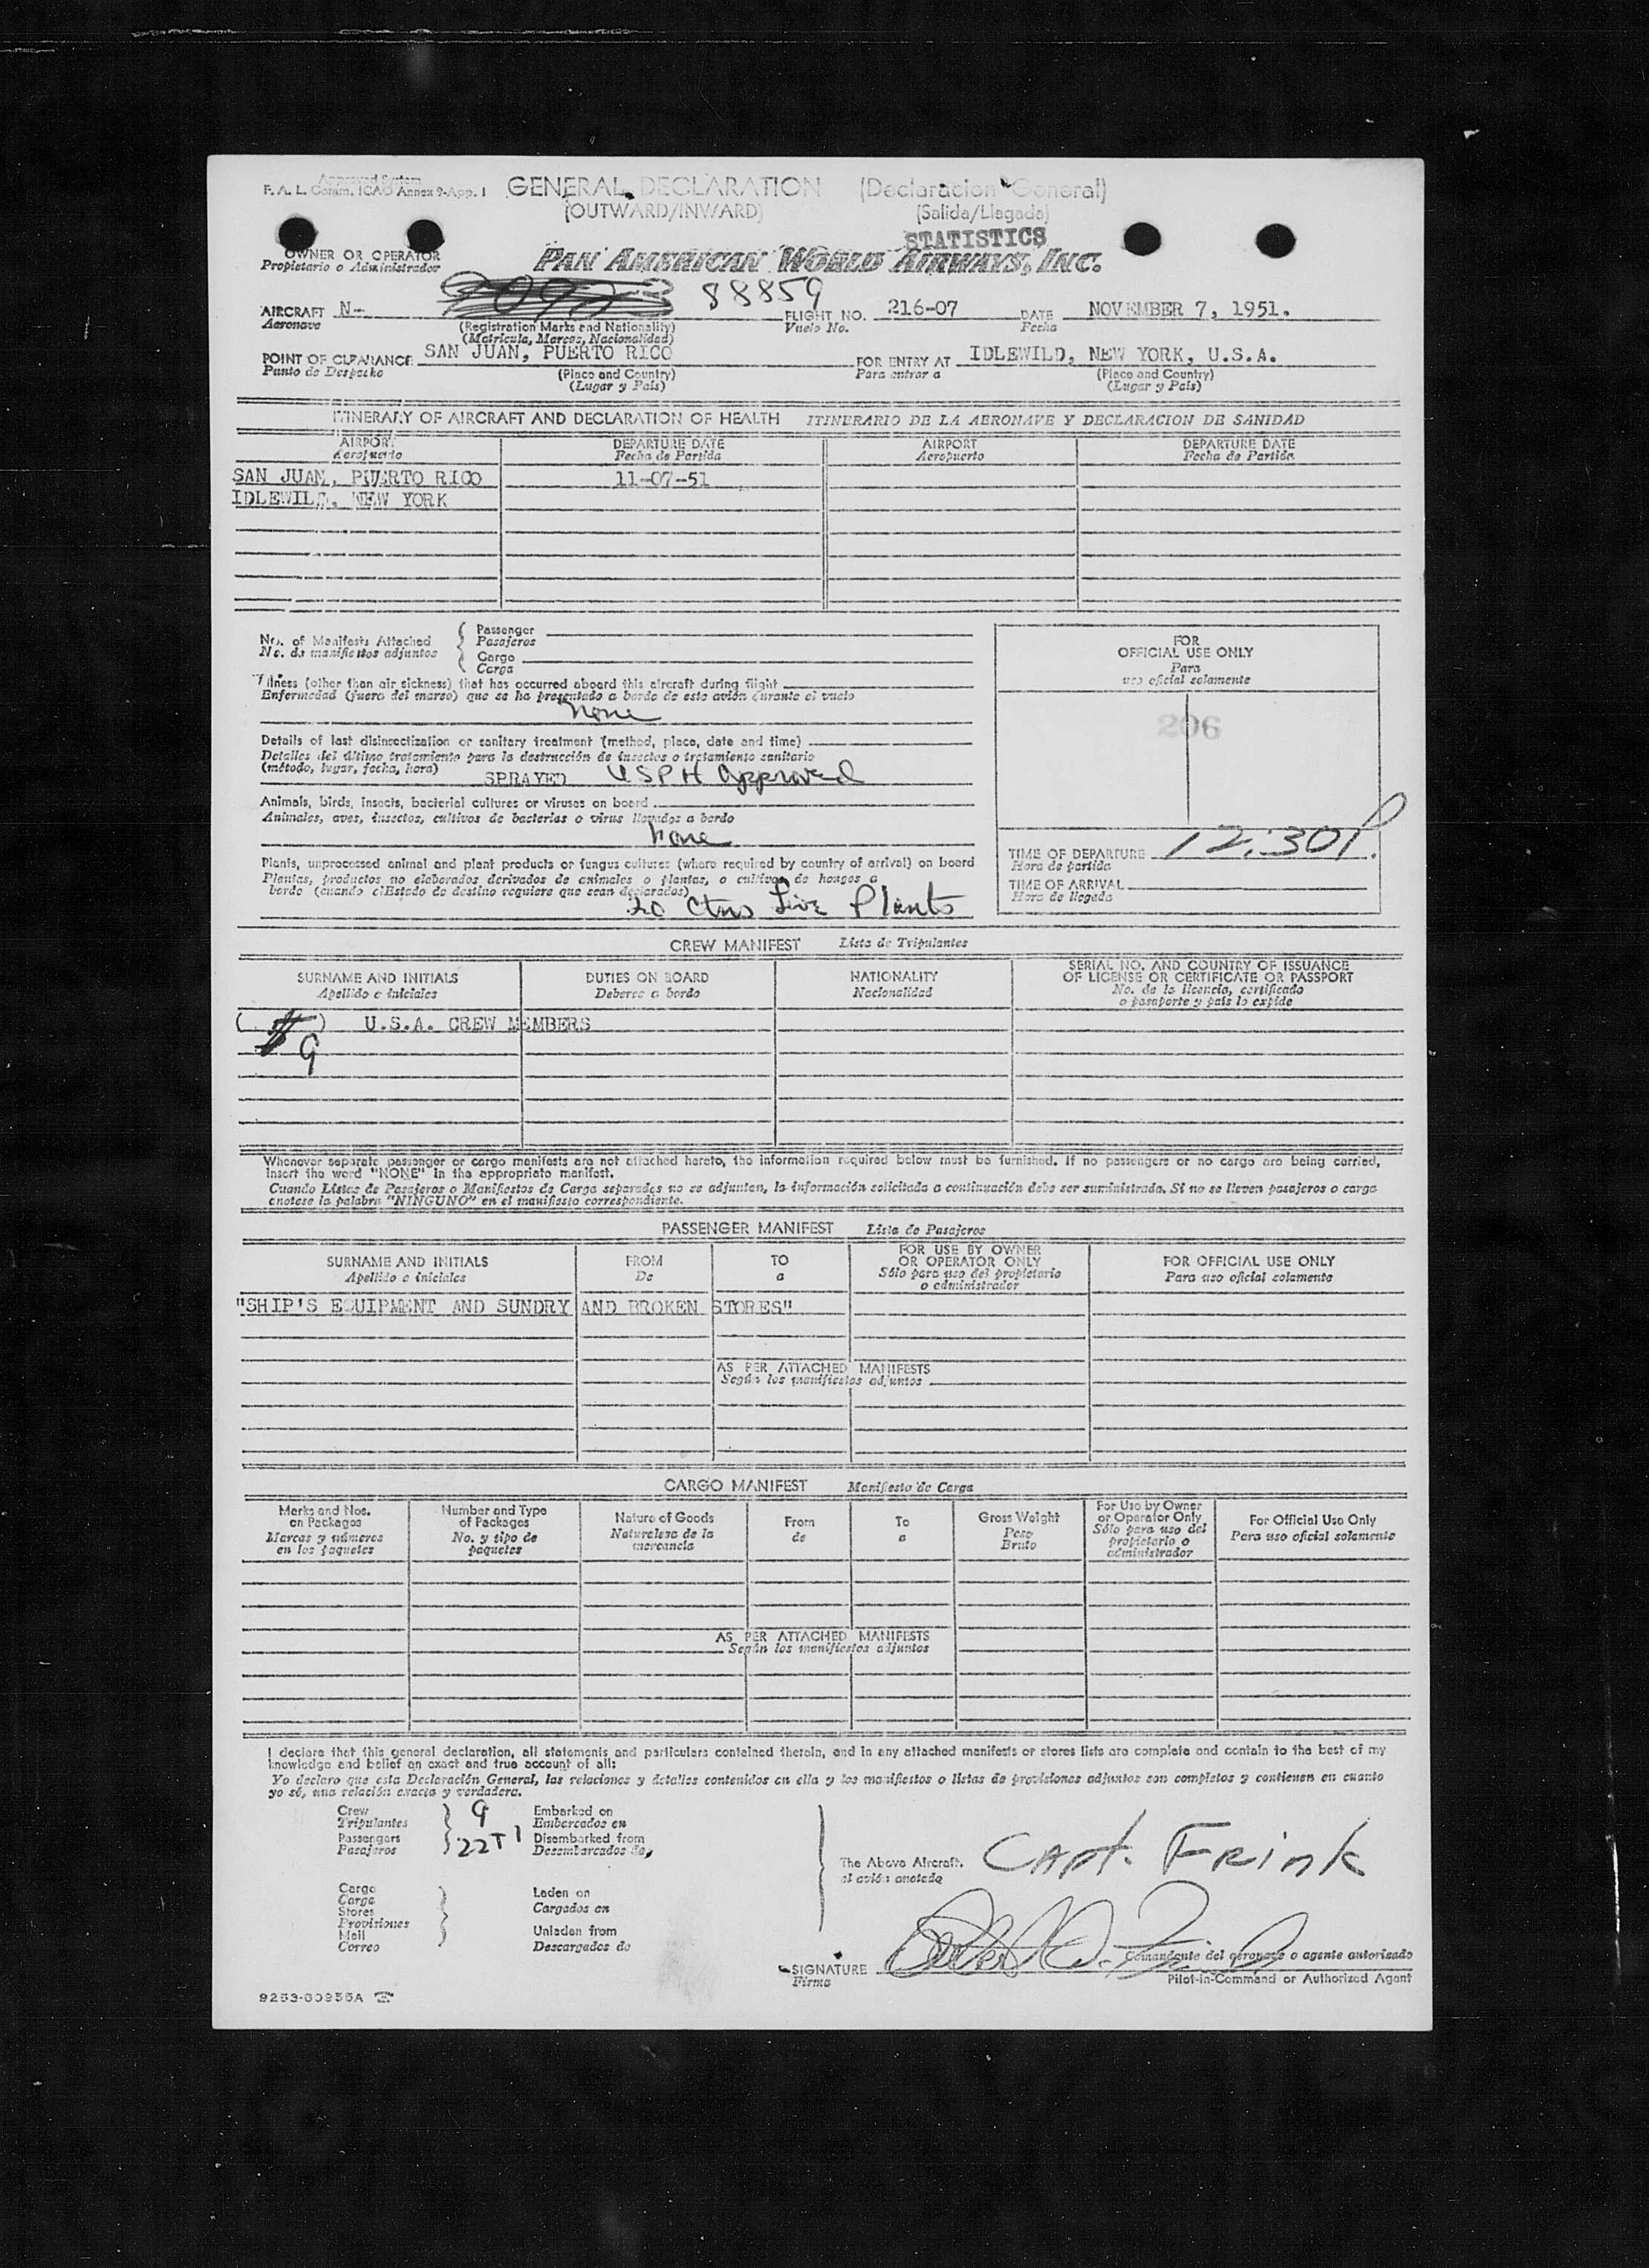 Approved System
F. A. L. Comm. ICAO Annex 9-App. 1
GENERAL DECLARATION (Declaracion General)
(OUTWARD/INWARD) (Salida/Llegada)
STATISTICS
OWNER OR OPERATOR
Propietario o Administrador
PAN AMERICAN WORLD AIRWAYS, INC.
88859
AIRCRAFT N- FLIGHT NO. 216-07 DATE NOVEMBER 7, 1951.
Aeronave (Registration Marks and Nationality) Vuelo No. Fecha
(Matricula, Marcas, Nacionalidad)
POINT OF CLEARANCE SAN JUAN, PUERTO RICO FOR ENTRY AT IDLEWILD, NEW YORK, U.S.A.
Punto de Despacho (Place and Country) Para entrar a (Place and Country)
(Lugar y País) (Lugar y País)
ITINERARY OF AIRCRAFT AND DECLARATION OF HEALTH ITINERARIO DE LA AERONAVE Y DECLARACION DE SANIDAD
AIRPORT DEPARTURE DATE AIRPORT DEPARTURE DATE
Aeropuerto Fecha de Partida Aeropuerto Fecha de Partida
SAN JUAN, PUERTO RICO 11-07-51
IDLEWILD, NEW YORK
No. of Manifests Attached
No. de manifiestos adjuntos
Passenger
Pasajeros
Cargo
Carga
Illness (other than air sickness) that has occurred aboard this aircraft during flight
Enfermedad (fuera del mareo) que se ha presentado a bordo de este avión durante el vuelo
None
Details of last disinsectization or sanitary treatment (method, place, date and time)
Detalles del último tratamiento para la destrucción de insectos o tratamiento sanitario
(método, lugar, fecha, hora)
SPRAYED USPH Approved
Animals, birds, insects, bacterial cultures or viruses on board
Animales, aves, insectos, cultivos de bacterias o virus llevados a bordo
None
Plants, unprocessed animal and plant products or fungus cultures (where required by country of arrival) on board
Plantas, productos no elaborados derivados de animales o plantas, o cultivos de hongos a
bordo (cuando el Estado de destino requiere que sean declarados)
20 Ctns Live Plants
FOR
OFFICIAL USE ONLY
Para
uso oficial solamente
206
TIME OF DEPARTURE 12:30P.
Hora de partida
TIME OF ARRIVAL
Hora de llegada
CREW MANIFEST Lista de Tripulantes
SURNAME AND INITIALS DUTIES ON BOARD NATIONALITY SERIAL NO. AND COUNTRY OF ISSUANCE
OF LICENSE OR CERTIFICATE OR PASSPORT
Apellido e iniciales Deberes a bordo Nacionalidad No. de la licencia, certificado
o pasaporte y país lo expide
( ) U.S.A. CREW MEMBERS
9
Whenever separate passenger or cargo manifests are not attached hereto, the information required below must be furnished. If no passengers or no cargo are being carried,
insert the word "NONE" in the appropriate manifest.
Cuando Listas de Pasajeros o Manifiestos de Carga separadas no se adjunten, la información solicitada a continuación debe ser suministrada. Si no se lleven pasajeros o carga
anótese la palabra "NINGUNO" en el manifiesto correspondiente.
PASSENGER MANIFEST Lista de Pasajeros
SURNAME AND INITIALS FROM TO FOR USE BY OWNER OR OPERATOR ONLY FOR OFFICIAL USE ONLY
Apellido e iniciales De a Sólo para uso del propietario o administrador Para uso oficial solamente
"SHIP'S EQUIPMENT AND SUNDRY AND BROKEN STORES"
AS PER ATTACHED MANIFESTS
Según los manifiestos adjuntos
CARGO MANIFEST Manifiesto de Carga
Marks and Nos. on Packages Number and Type of Packages Nature of Goods From To Gross Weight For Use by Owner or Operator Only For Official Use Only
Marcas y números en los paquetes No. y tipo de paquetes Naturaleza de la mercancía de a Peso Bruto Sólo para uso del propietario o administrador Para uso oficial solamente
AS PER ATTACHED MANIFESTS
Según los manifiestos adjuntos
I declare that this general declaration, all statements and particulars contained therein, and in any attached manifests or stores lists are complete and contain to the best of my
knowledge and belief an exact and true account of all:
Yo declaro que esta Declaración General, las relaciones y detalles contenidos en ella y los manifiestos o listas de provisiones adjuntos son completos y contienen en cuanto
yo sé, una relación exacta y verdadera.
Crew 9 Embarked on
Tripulantes Embarcados en
Passengers 22+1 Disembarked from
Pasajeros Desembarcados de
The Above Aircraft. Capt. Frink
el avión anotado
Cargo
Carga
Stores
Provisiones
Mail
Correo
Laden on
Cargados en
Unladen from
Descargados de
Comandante del aeronave o agente autorizado
SIGNATURE
Firma
Pilot-in-Command or Authorized Agent
9253-60955A